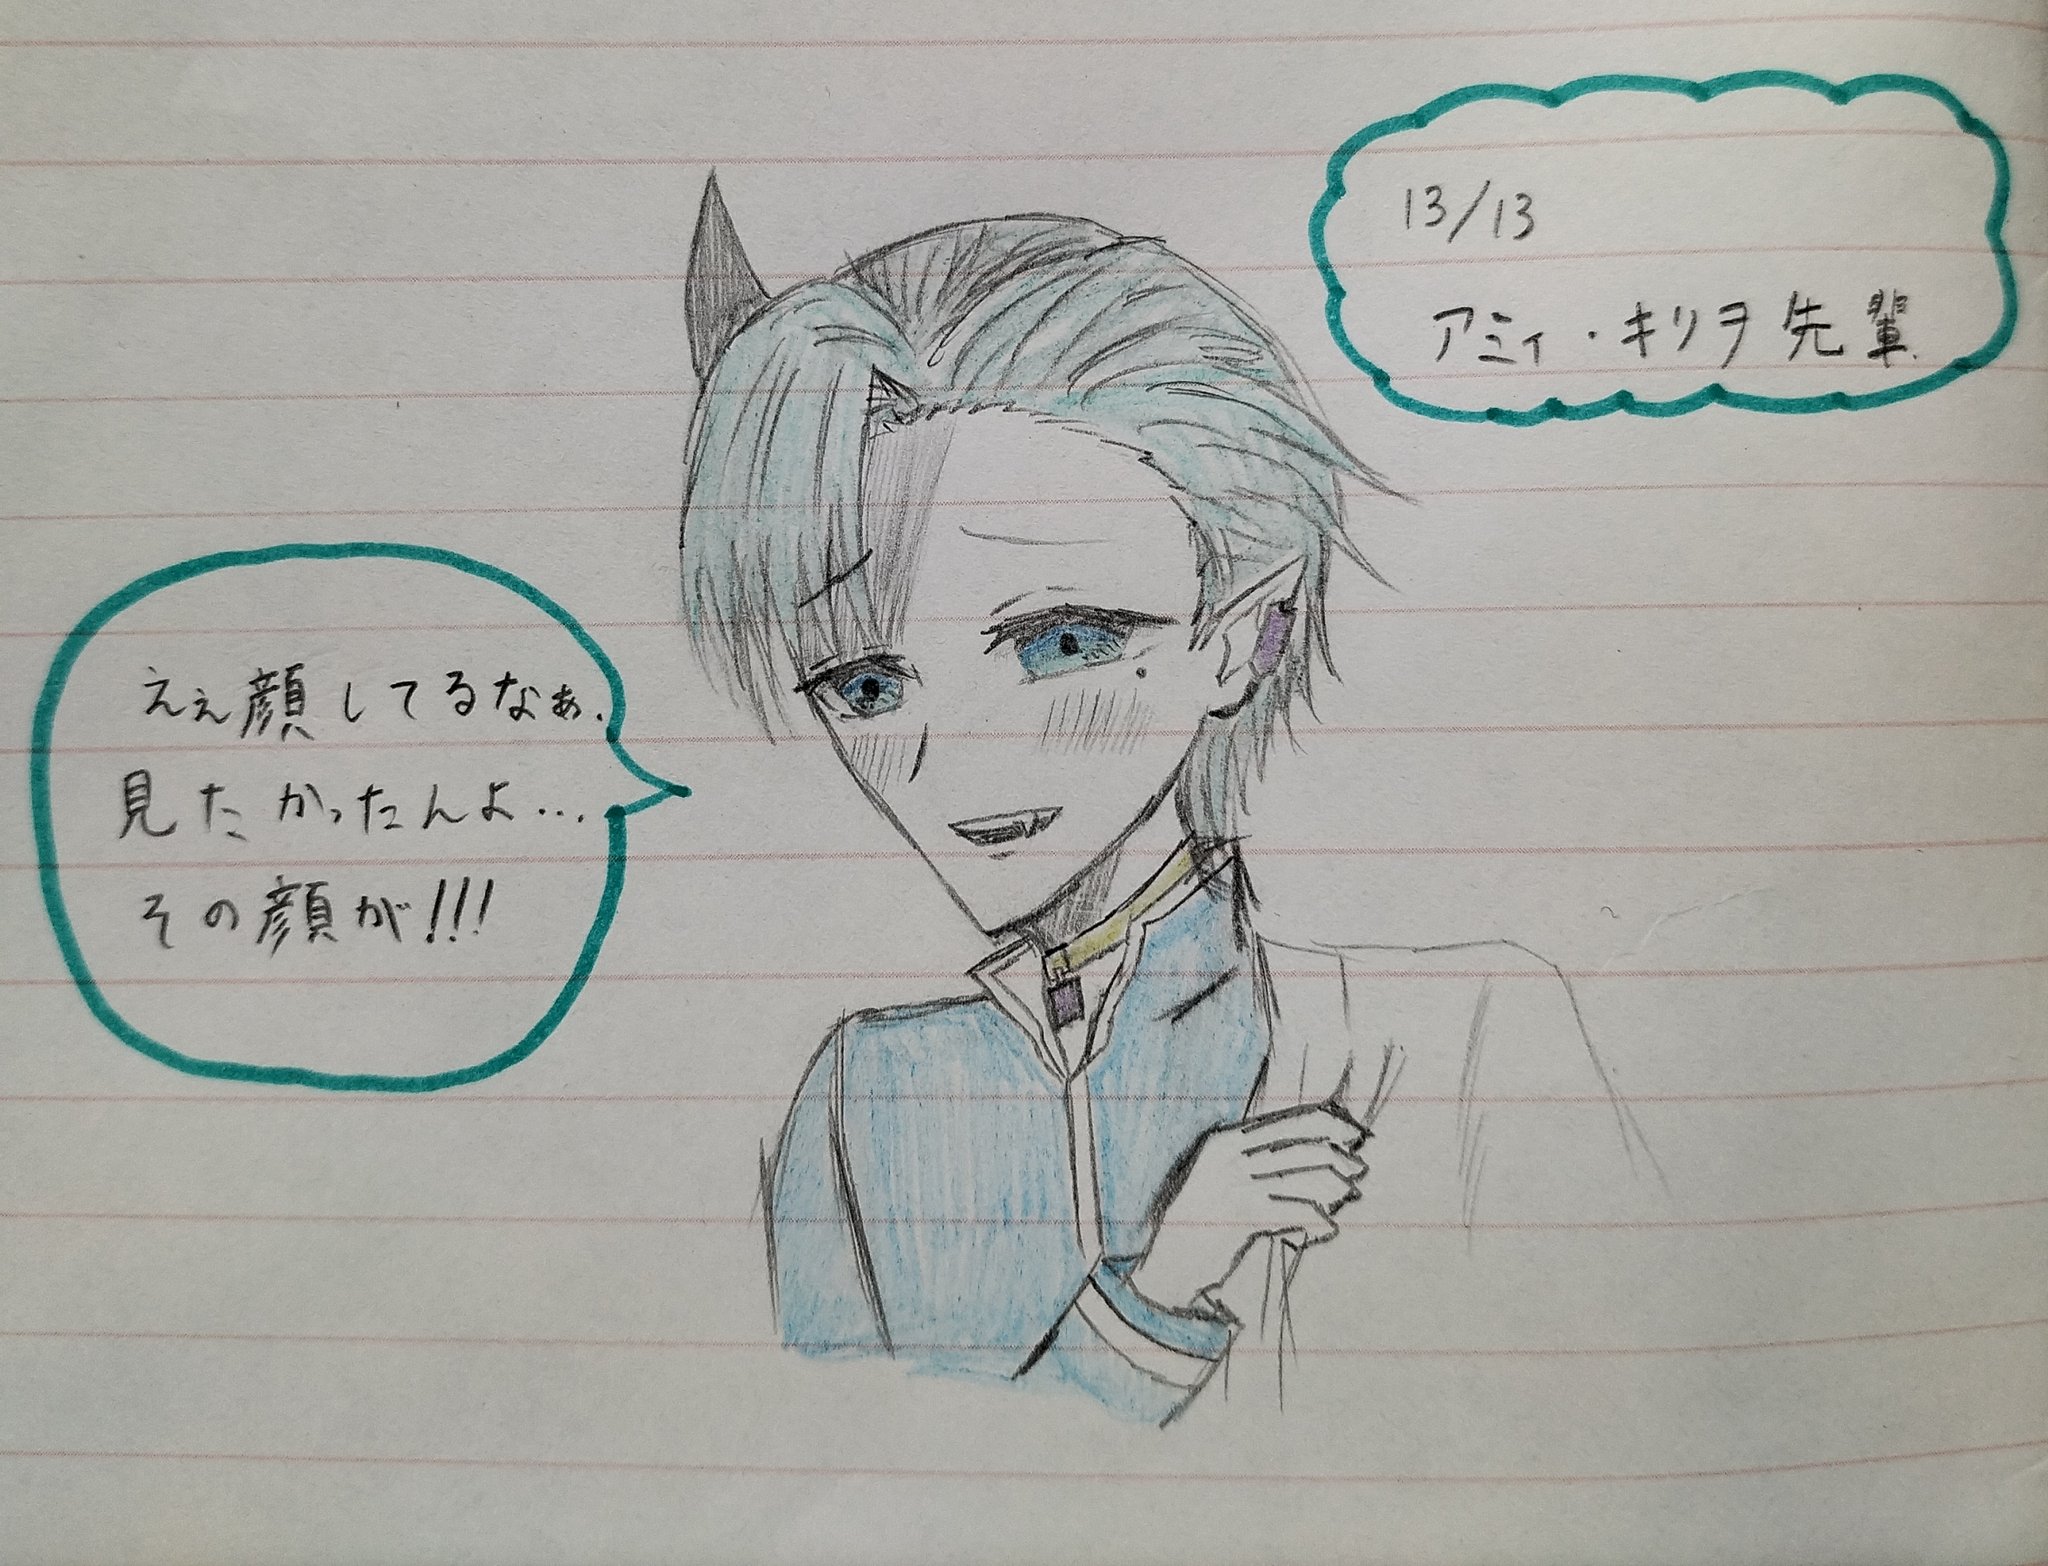 13/13
アミィ・キリヲ先輩
ええ顔してるなぁ.
見たかったんよ...
その顔が!!!